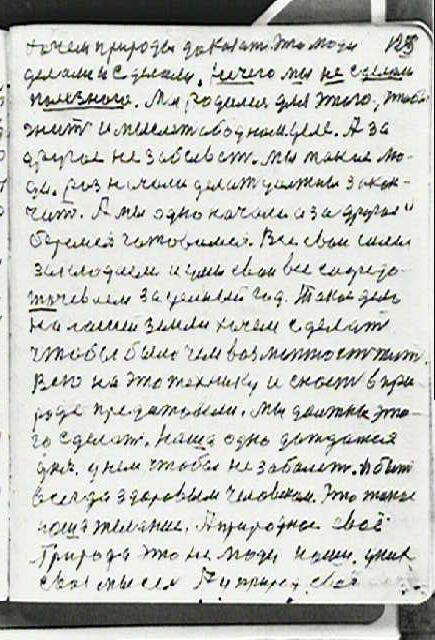 хочем природы доказат. Это люди 125
делали и сделали, ничего мы не сделали
полезного. Мы родилися для этого, чтобы
жит и мыслет об одном деле. А за
другое не забыват. Мы такие лю-
ди, раз начали делат должны закон-
чит. А мы одно начали а за другое
беремся готовимся. Все свои силы
и умы свои все сосредо-
точеваем за целый год. Такой день
на нашей земли хочем сделат
чтобы было чем возможност жит.
Всю на это технику и в при-
роде Мы должны это-
го сделат. Наша одно дождатся
дня, у нем чтобы не заболет. А быт
всегда здоровым человеком. Это такое
наше желание. А природное своё
Природа это не люди наши, у них
свои мысля А у природ своё